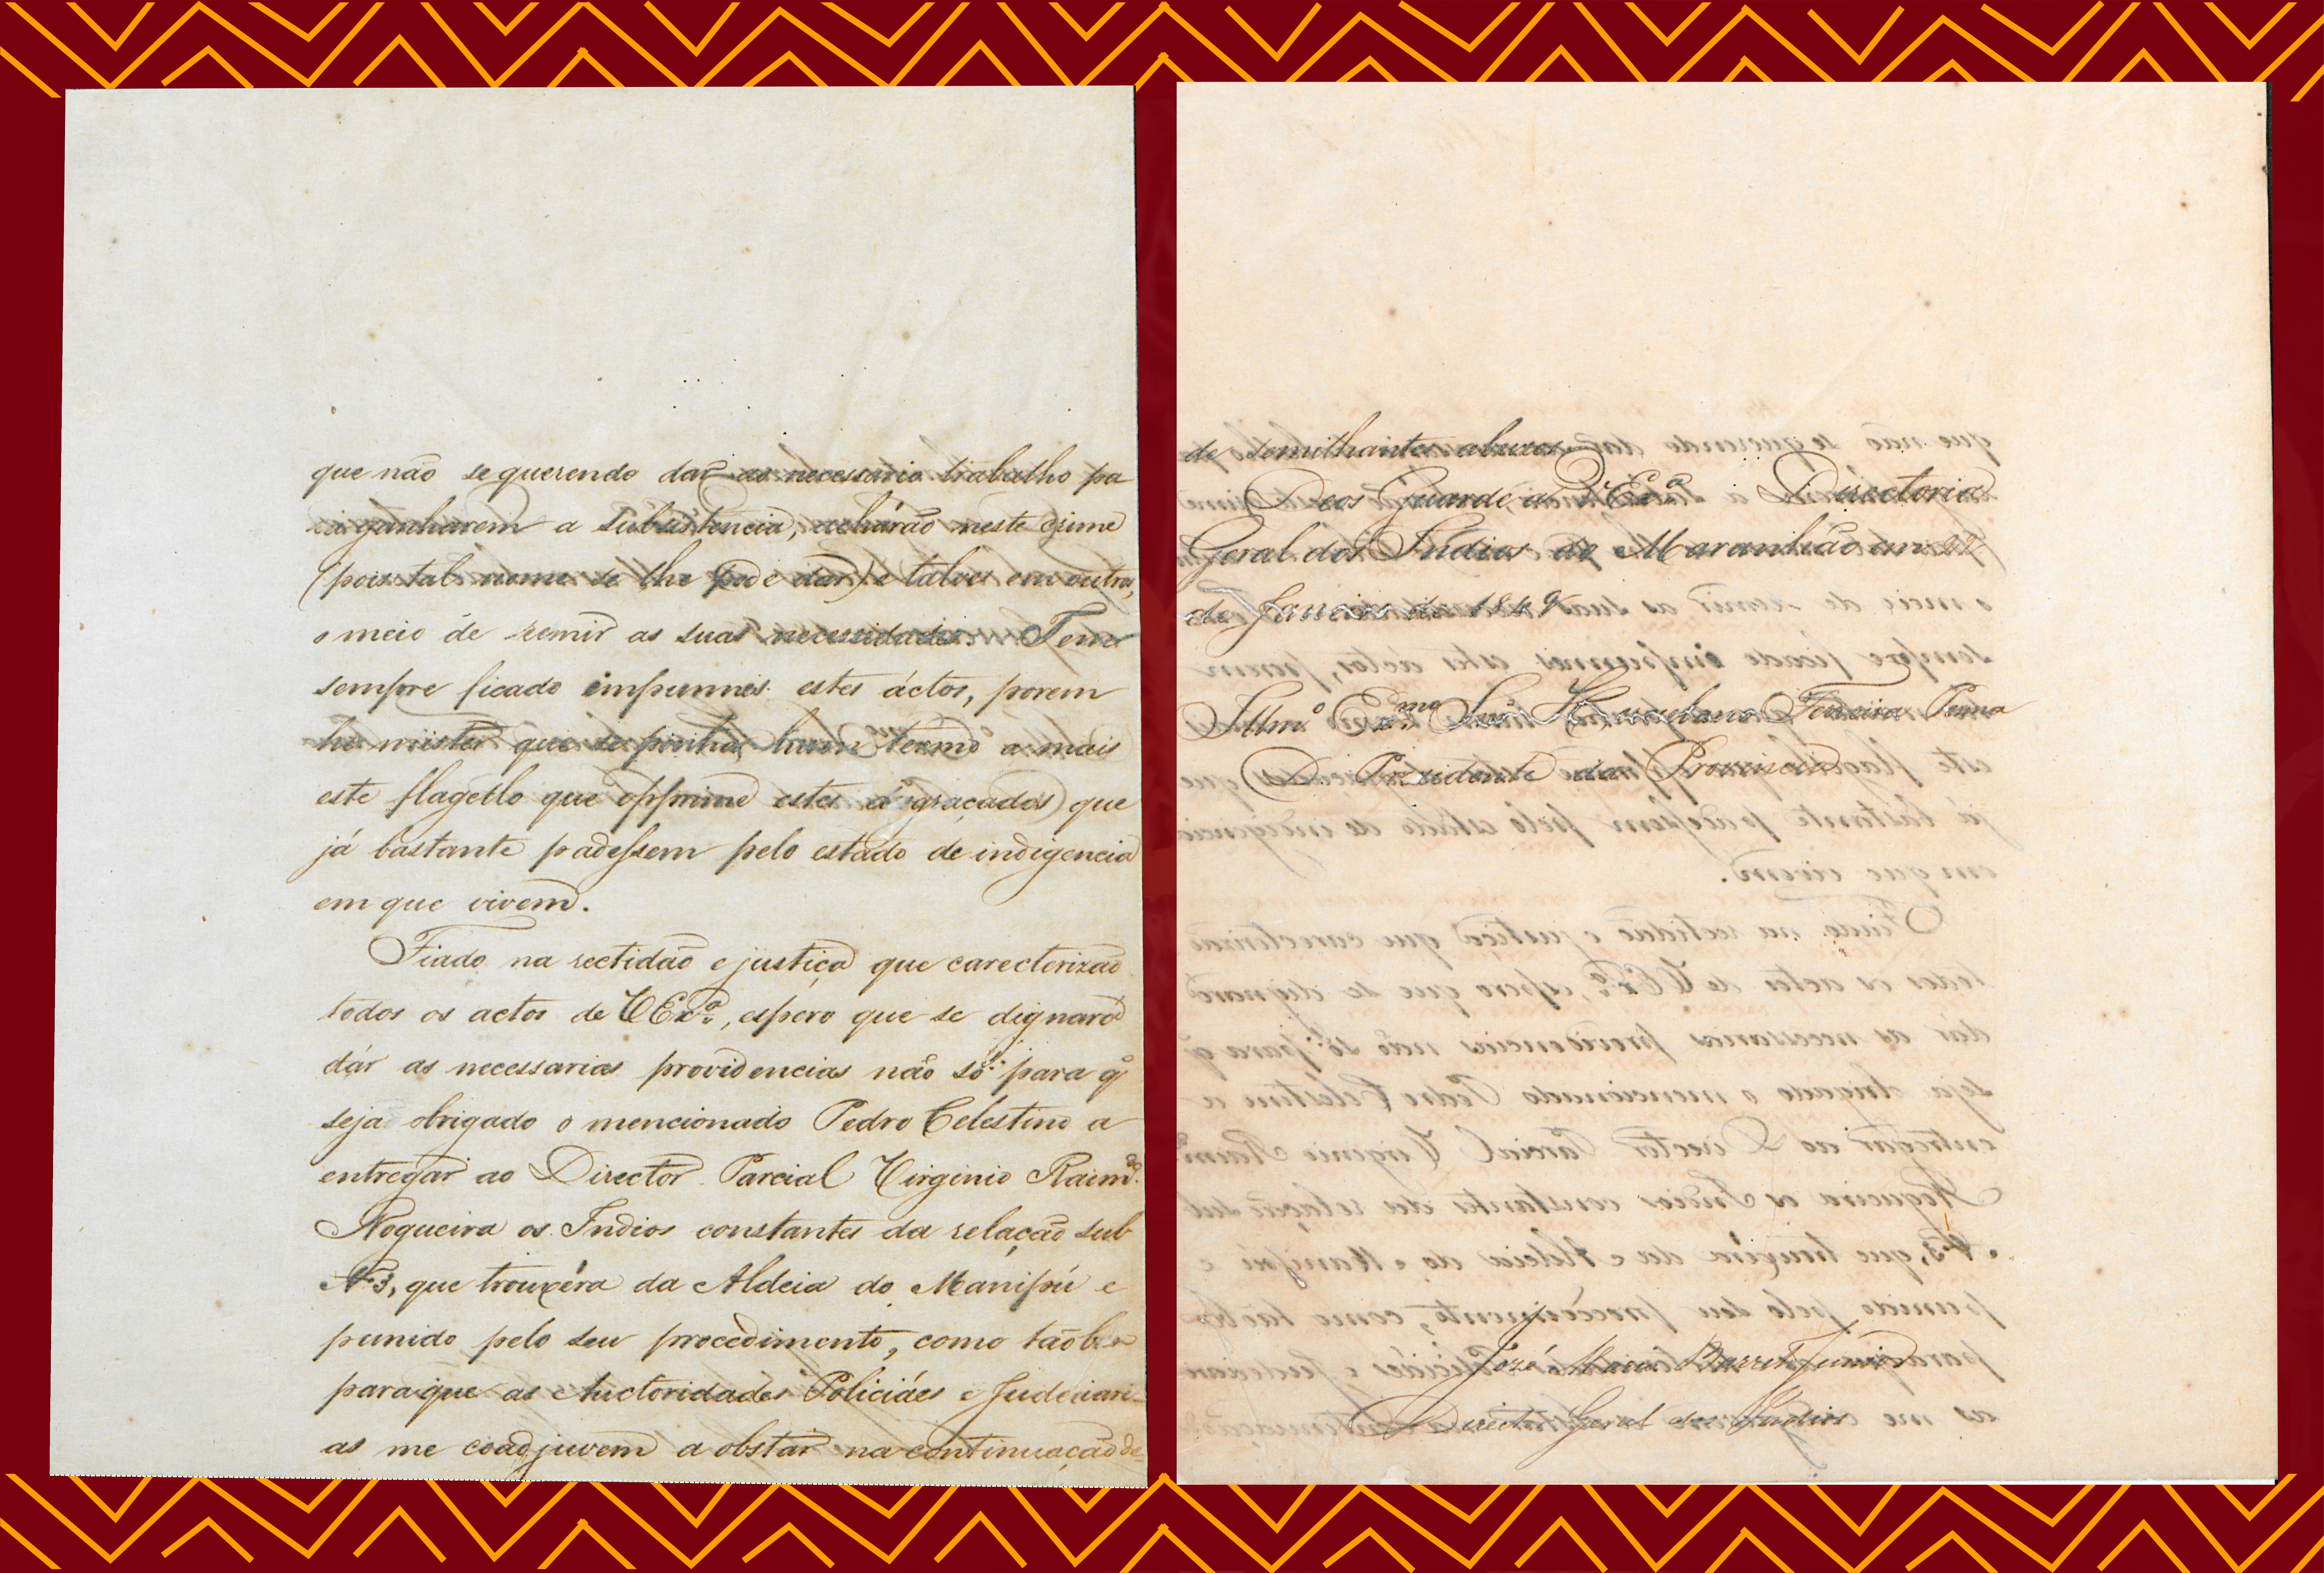 que não se querendo dar ao necessario trabalho pa
ra ganharem a subsistencia, acharão neste crime
(pois tal nome se lhe pode dar) e talves em outros,
o meio de remir as suas necessidades. Tem
sempre ficado impunnes estes áctos, porem
he mister que se ponha hum termo a mais
este flagello que opprime estes desgraçados que
já bastante padessem pelo estado de indigencia
em que vivem.
Fiado na rectidão e justiça que carecterizão
todos os actos de VEx.ª, espero que se dignará
dár as necessarias providencias não só para q'
seja obrigado o mencionado Pedro Celestino a
entregar ao Director Parcial Virginio Raim.do
Nogueira os Indios constantes da relação sub
Nº 3, que trouxéra da Aldeia do Manipú e
punido pelo seu procedimento, como tãobem
para que as Auctoridades Policiáes e Judeciari-
as me coadjuvem a obstar na continuação
de semilhantes abuzos.
Deos Guarde a VEx.ª Directoria
Geral dos Indios do Maranhão em 22
de Janeiro de 1849
Illm.º Ex.mo Snr. Herculano Ferreira Penna
D. Prezidente da Provincia
José Maria Barreto Junior
Director Geral dos Indios